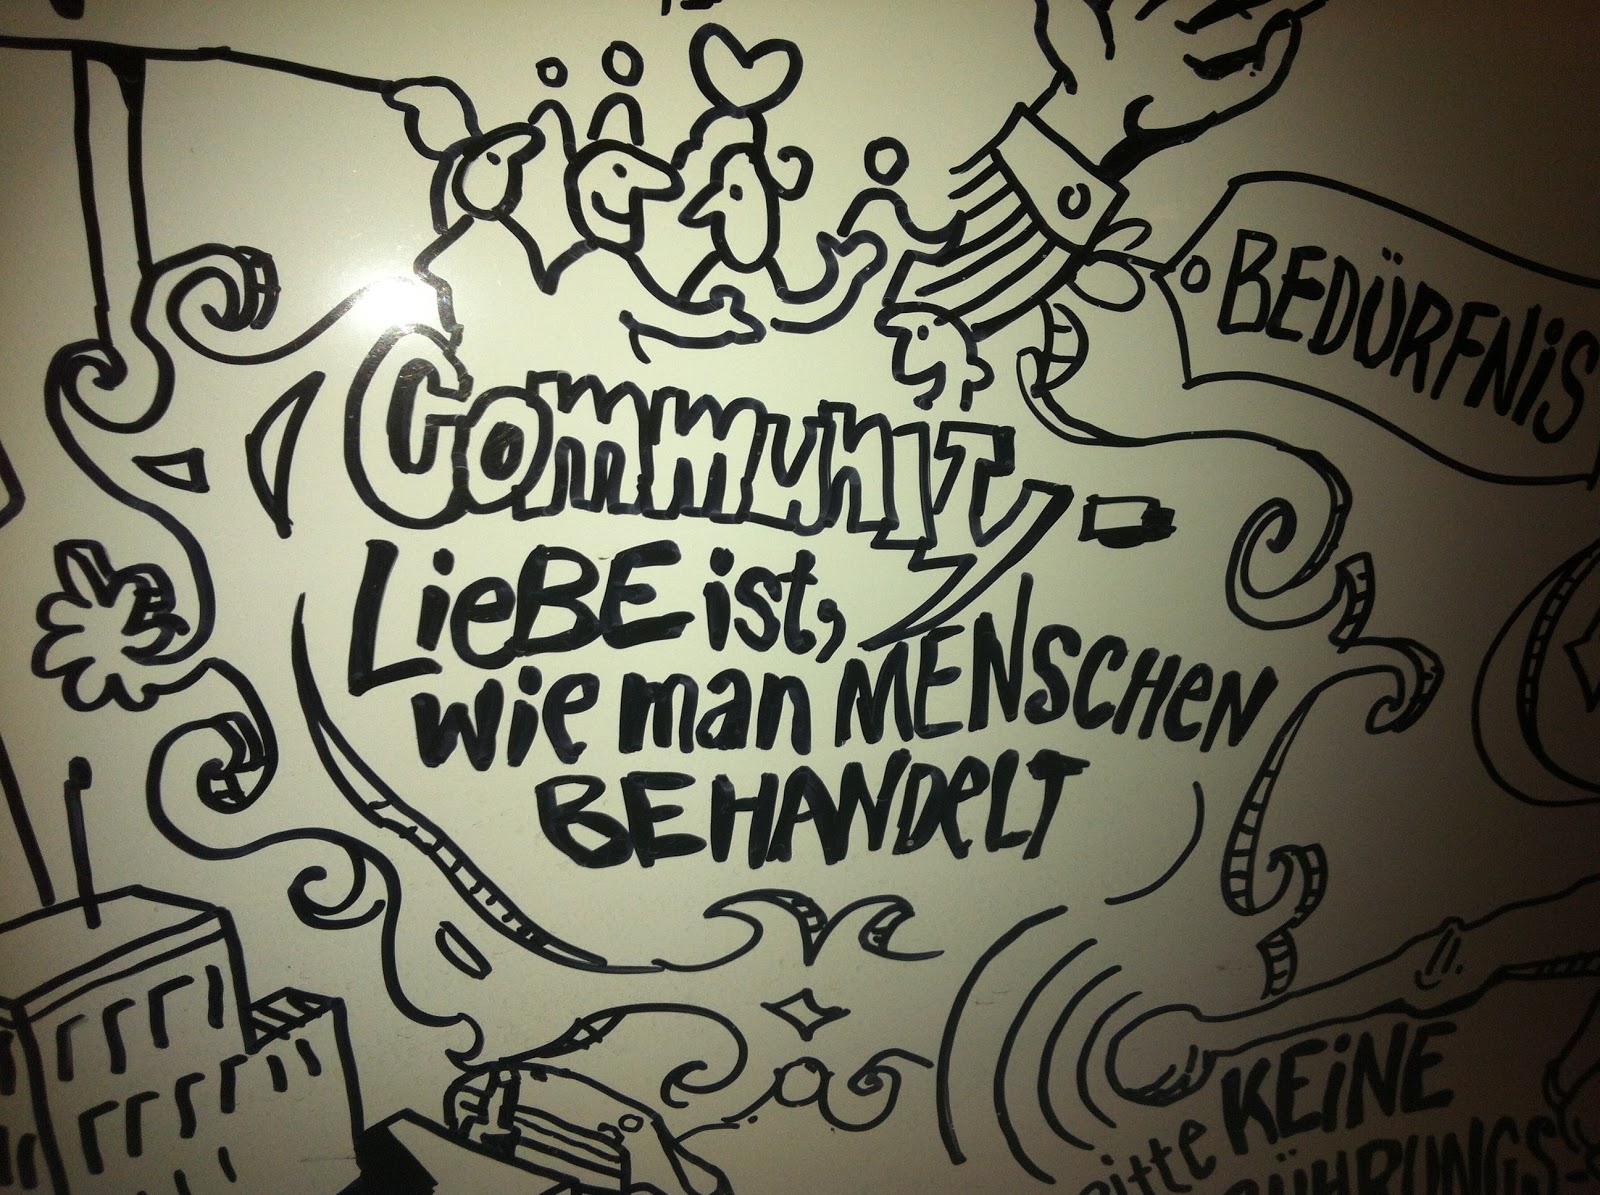 BEDÜRFNIS
COMMUNITY-
LIEBE ist,
wie man MENSCHEN
BEHANDELT
KEINE